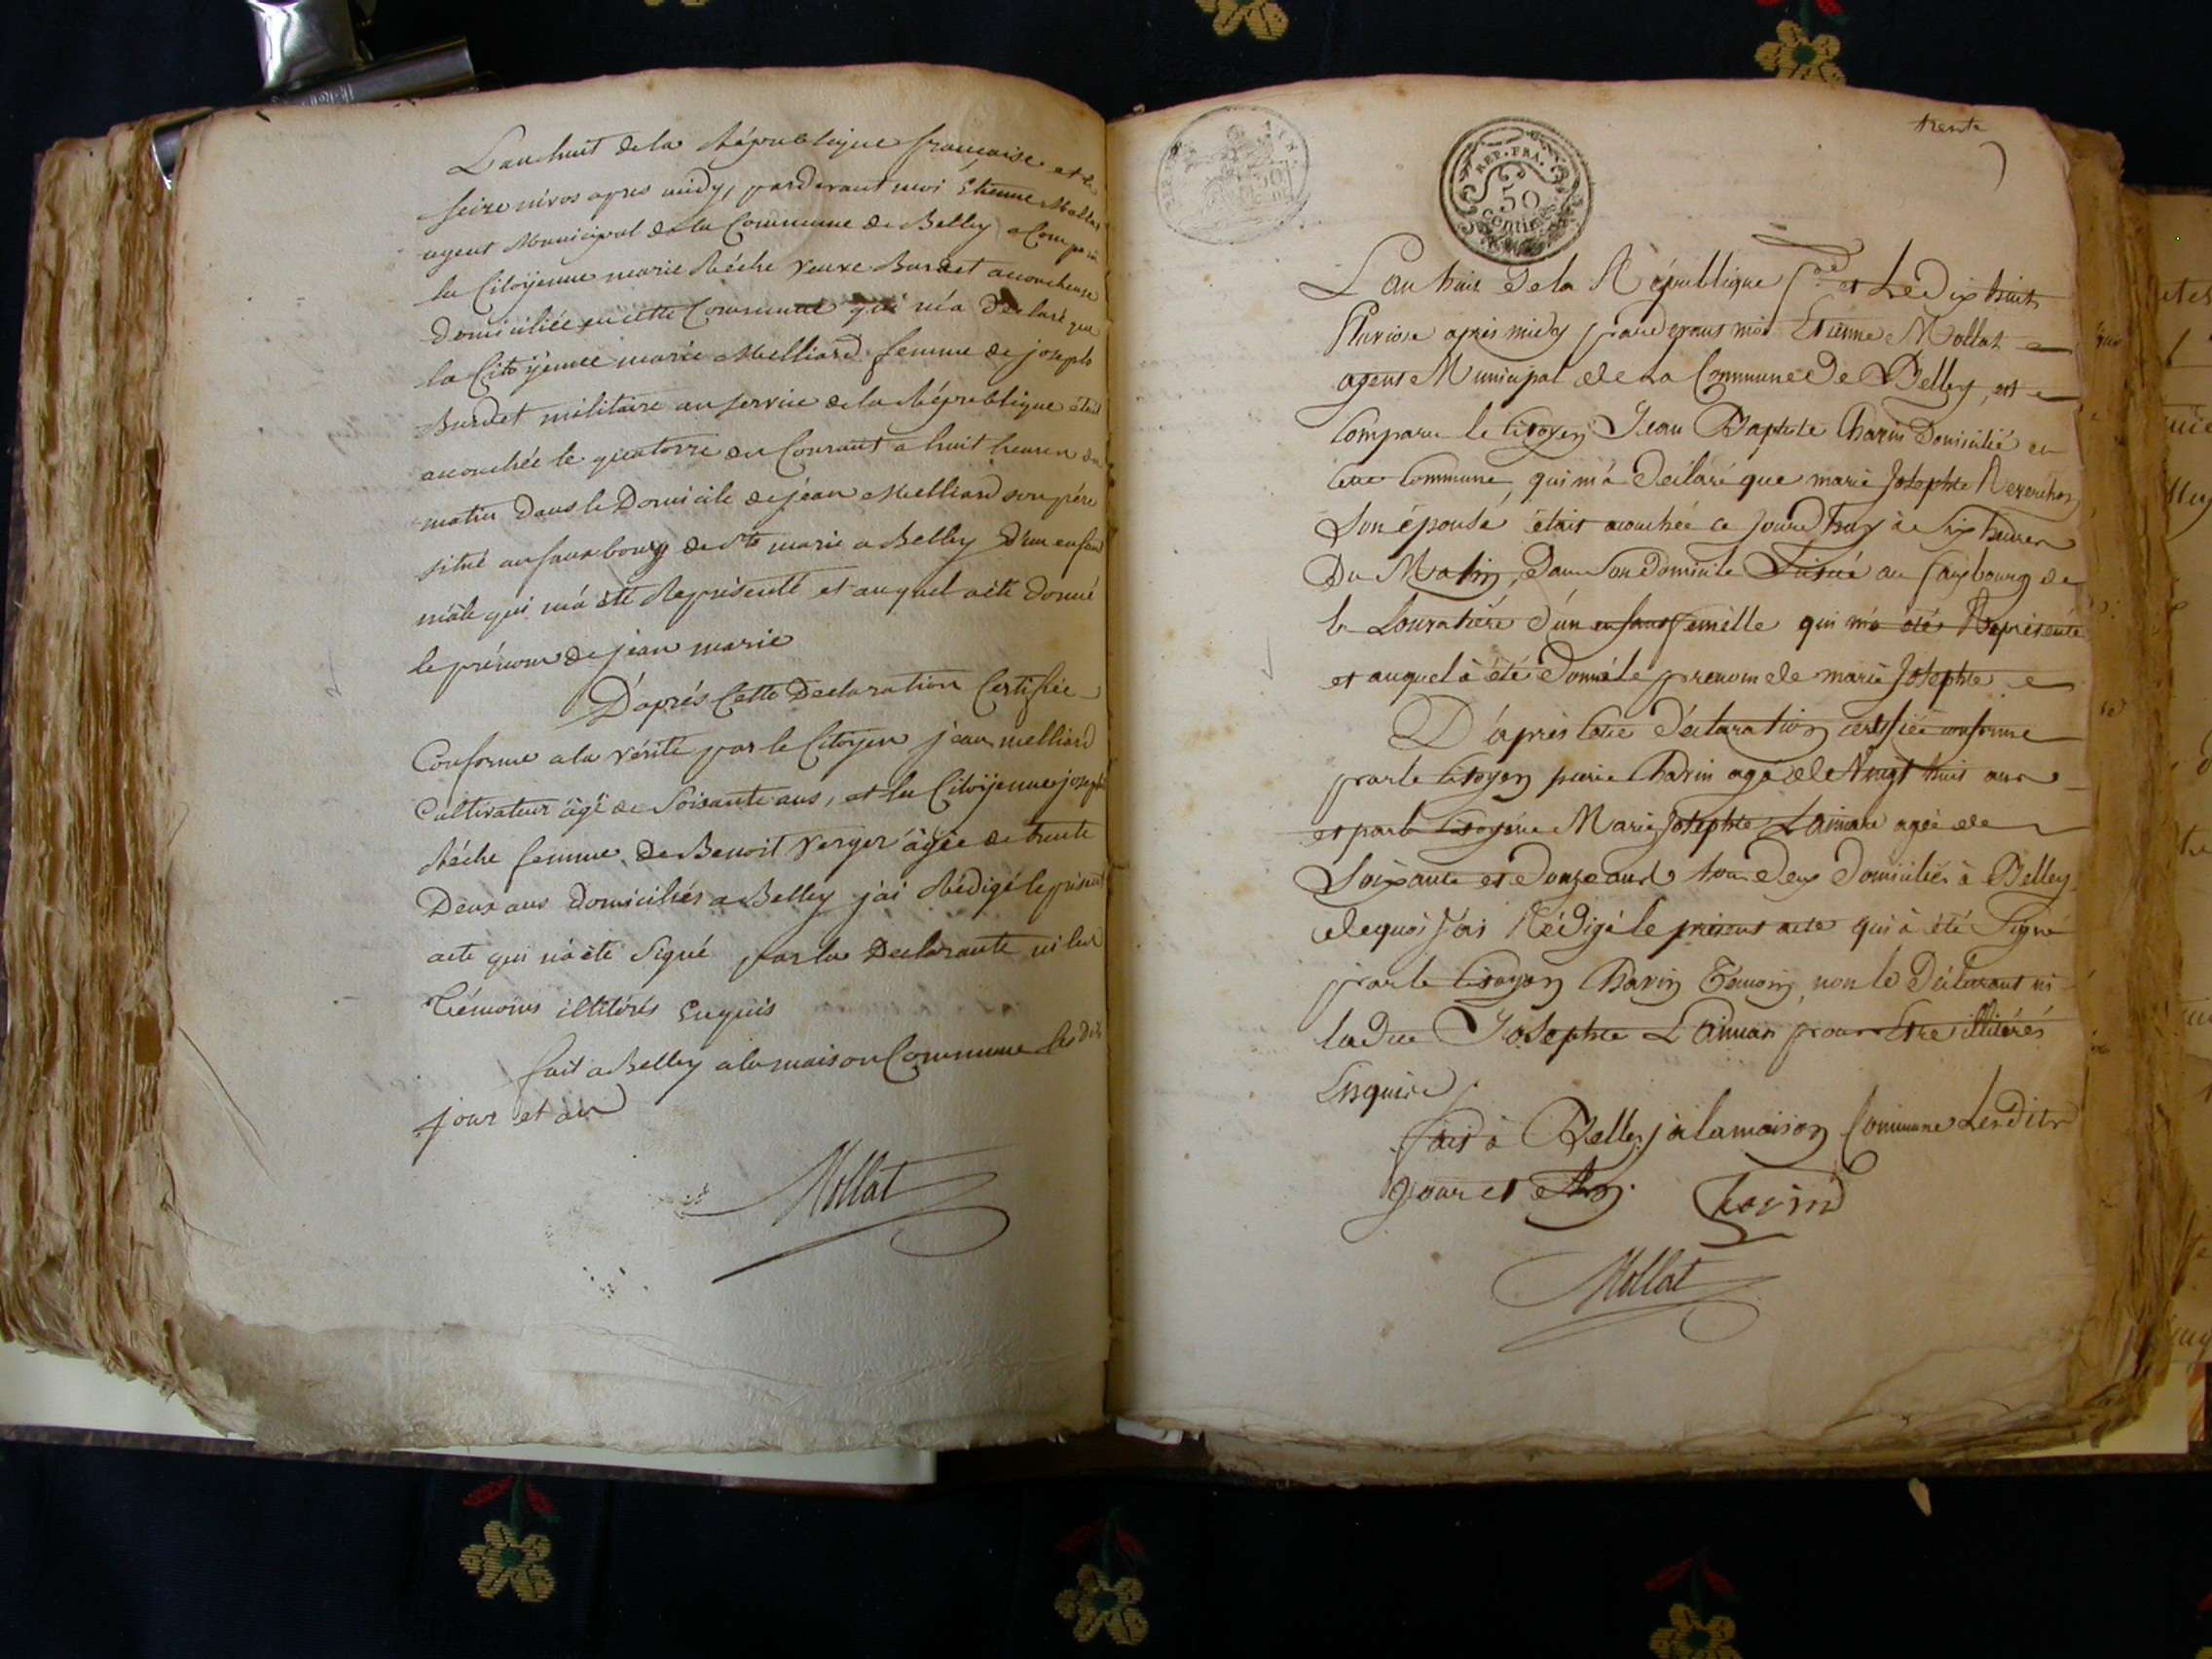 L'an huit de la République française et le
seize nivos apres midy, pardevant moi Étienne Mollat
agent Municipal de la Commune de Belley a Comparu
la Citoÿenne marie Réche veuve Burdet accoucheuse
domiciliée en cette Commune qui m'a déclaré que
la Citoÿenne marie Melliard femme de joseph
Burdet militaire au service de la République étoit
accouchée le quatorze du Courant a huit heures du
matin dans le Domicile de jean Melliard son pére
situé au fauxbourg de Ste marie a Belley d'un enfant
mâle qui m'a été Représenté et auquel a été donné
le prénom de jean marie
D'aprés Cette Declaration Certifiée
Conforme a la vérité par le Citoyen jean melliard
Cultivateur âgé de Soixante ans, et la Citoÿenne josephte
Réche femme de Benoit Verger âgée de trente
Deux ans domiciliés a Belley j'ai Rédigé le présent
acte qui n'a été Signé par la Declarante ni les
témoins illitérés Enquis
fait a Belley a la maison Commune les dits
jour et an
Mollat
trente
REP. FRA.
50
centimes
L'an huit de la République f.se et Le dix huit
Pluviose après midy pardevant moi Etienne Mollat
agent Municipal de La Commune De Belley, est
Comparu le Citoyen Jean Baptiste Chavin Domicilié en
Cette Commune, qui m'a Déclaré que marie Josephte Reverchon
Son épouse étoit acouchée ce Jourd'huy à Six heures
Du Matin, dans Son domicile Situé au fauxbourg de
la Louvatière d'un enfant femelle qui m'a été Représenté
et auquel à été Donné le prenom de marie Josephte
D'après Cette Déclaration certifiée conforme
par le Citoyen pierre Chavin agé de Vingt huit ans
et par la Citoyene Marie Josephte Laimare agée de
Soixante et douze ans tous deux Domiciliés à Belley
de quoi J'ai Rédigé le présent acte qui à été Signé
par le Citoyen Chavin Témoin, non le Déclarant ni
la dite Josephte Laimar pour Etre illitérés
Enquis
fait à Belley à la maison Commune Les dits
Jour et An.
Chavin
Mollat